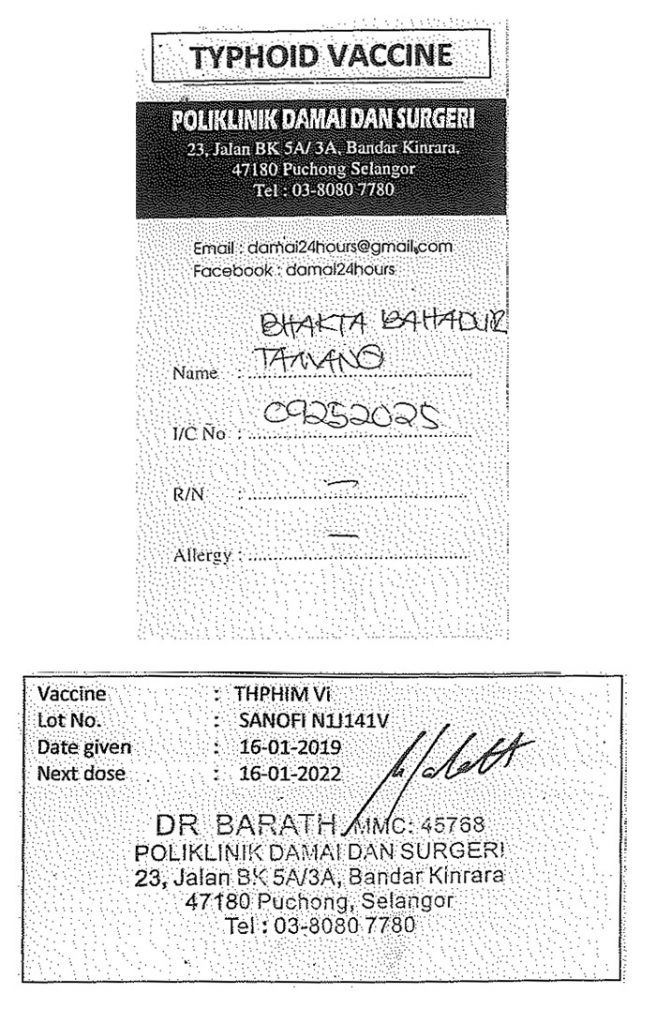 TYPHOID VACCINE
POLIKLINIK DAMAI DAN SURGERI
23, Jalan BK 5A/ 3A, Bandar Kinrara,
47180 Puchong Selangor
Tel : 03-8080 7780
Email : damai24hours@gmail.com
Facebook : damai24hours
BHAKTA BAHADUR
Name : TAMANG
I/C No : 09252025
R/N : —
Allergy : —
Vaccine : THPHIM Vi
Lot No. : SANOFI N1J141V
Date given : 16-01-2019
Next dose : 16-01-2022
DR BARATH MMC: 45768
POLIKLINIK DAMAI DAN SURGERI
23, Jalan BK 5A/3A, Bandar Kinrara
47180 Puchong, Selangor
Tel : 03-8080 7780